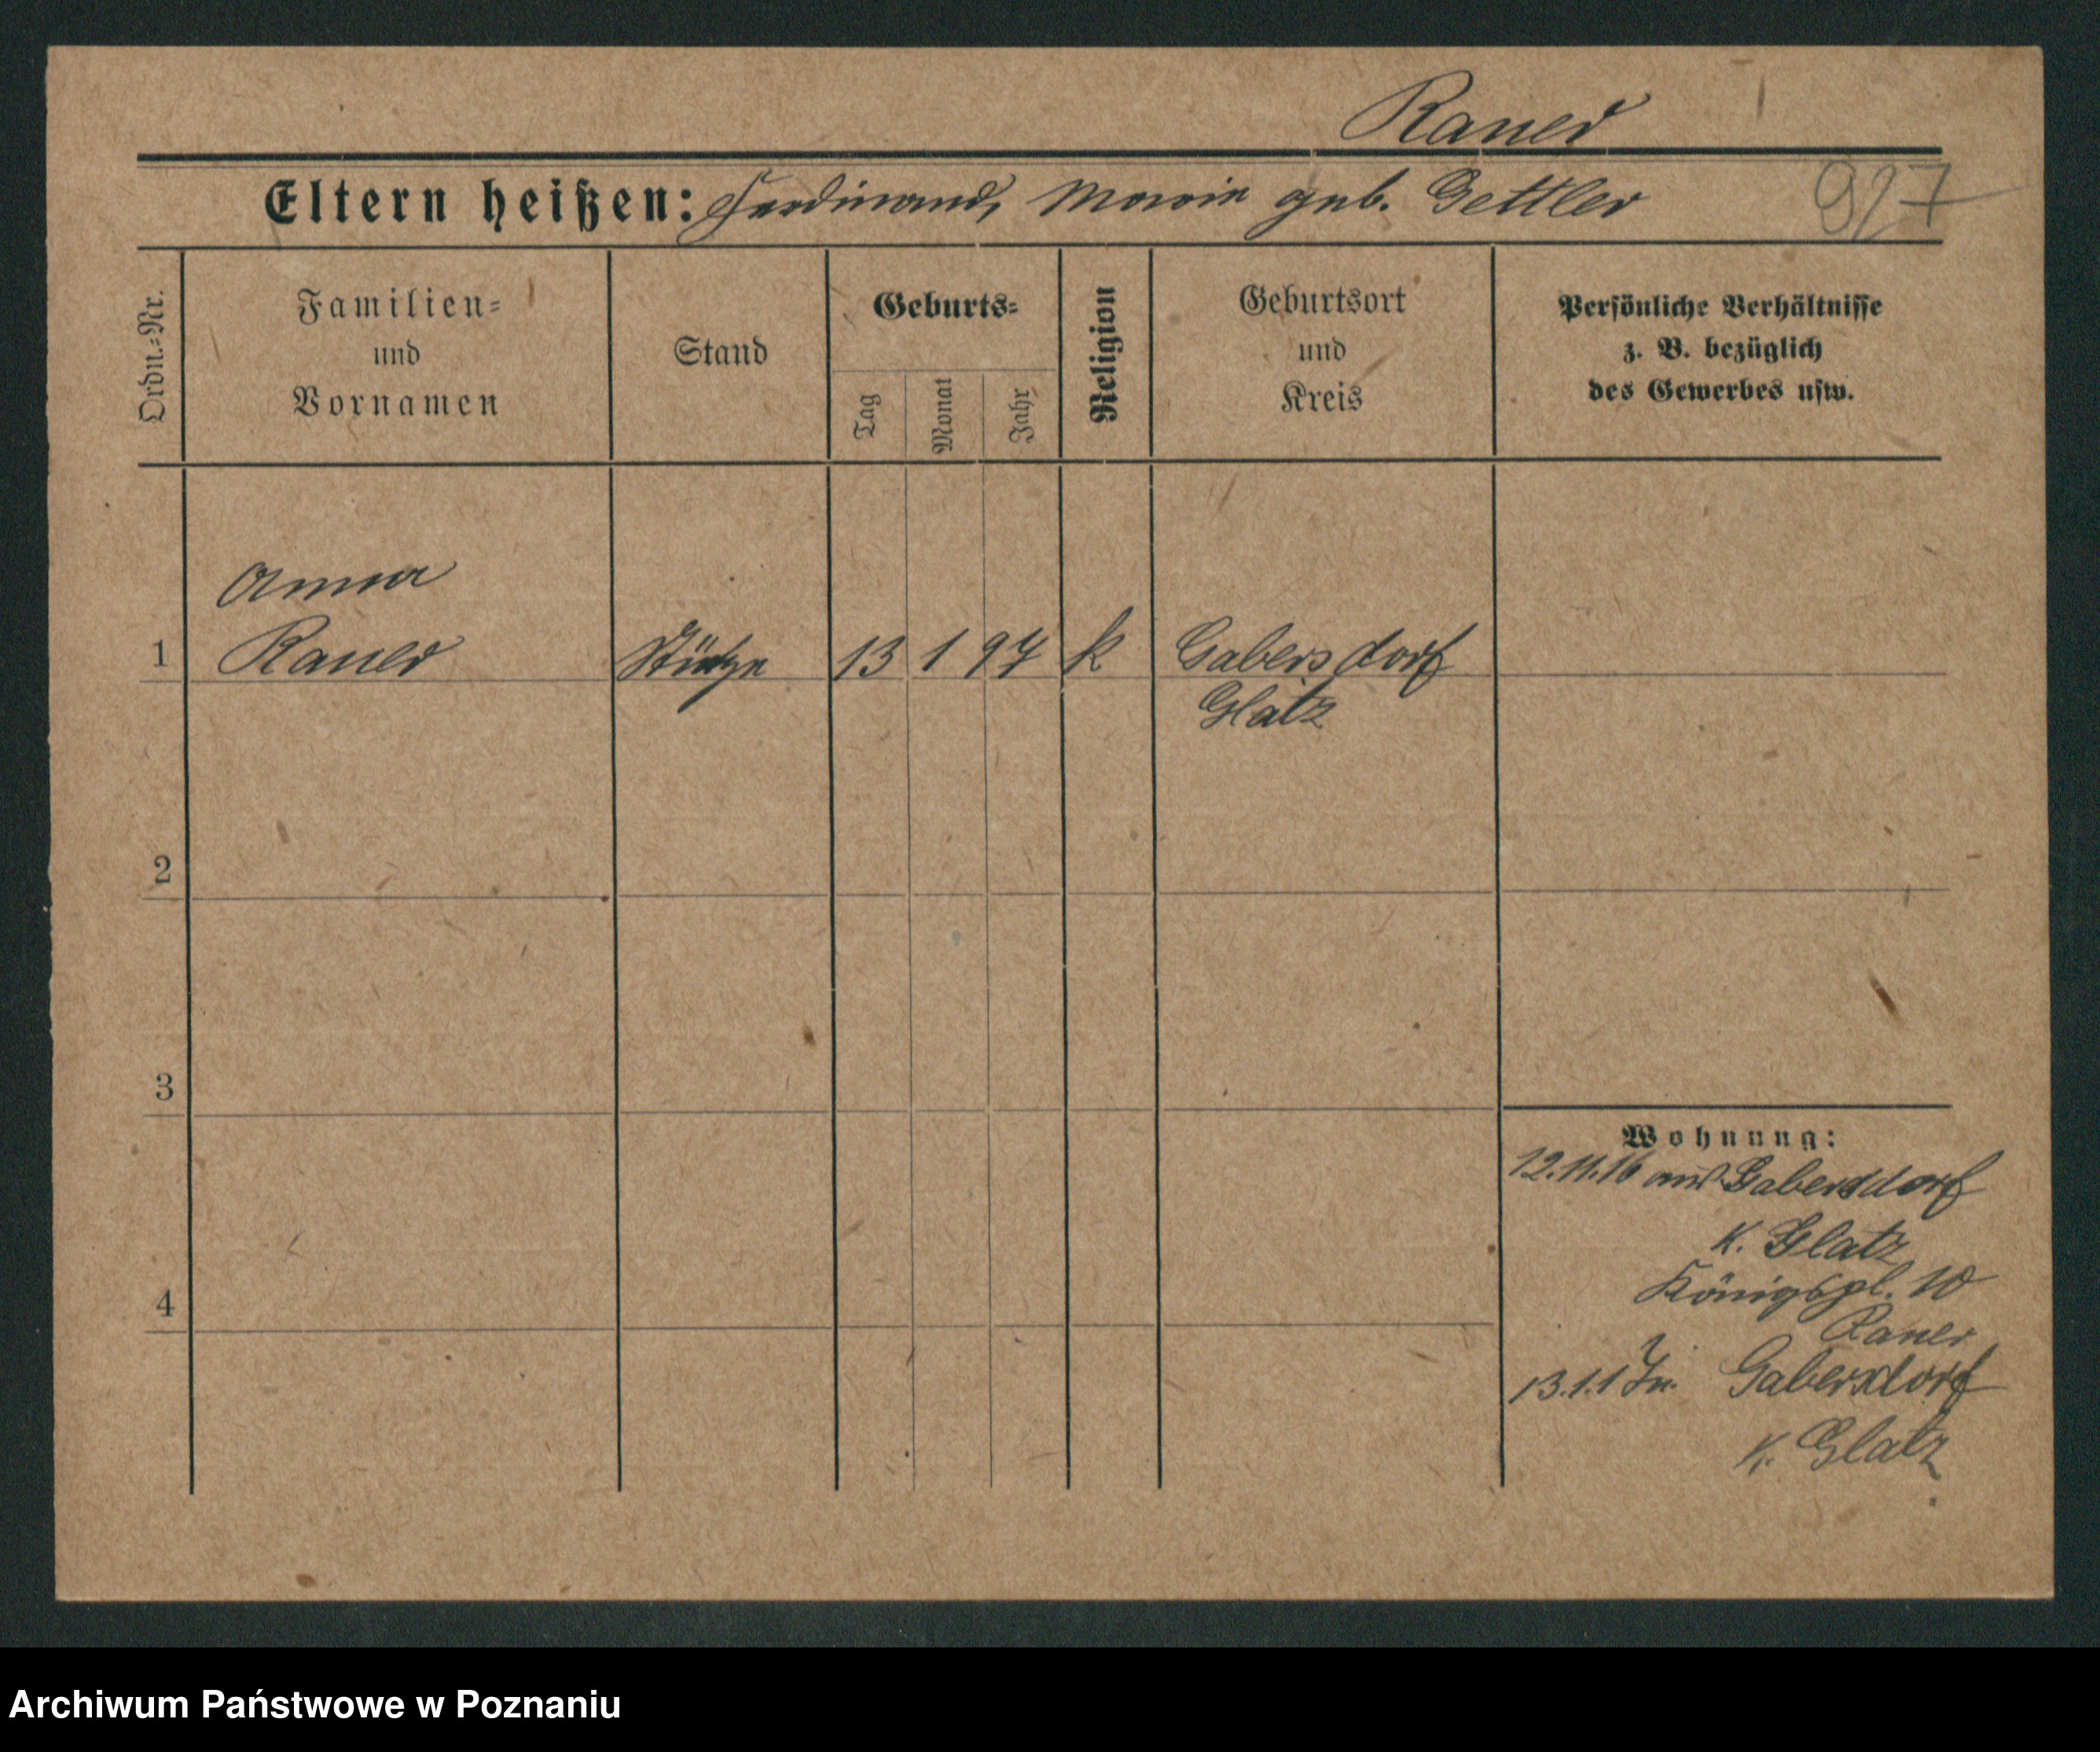 Rauer
Eltern heißen: Ferdinand, Marie geb. Gettler
917
Ordn.-Nr.
Familien-
und
Vornamen
Stand
Geburts-
Tag
Monat
Jahr
Religion
Geburtsort
und
Kreis
Persönliche Verhältnisse
z. B. bezüglich
des Gewerbes usw.
Anna
1 Rauer Stütze 13 1 97 k Gabersdorf
Glatz
2
3
4
Wohnung:
12.11.16 aus Gabersdorf
K. Glatz
Königspl. 10
Rauer
13.1.17 Gabersdorf
K. Glatz
Archiwum Państwowe w Poznaniu